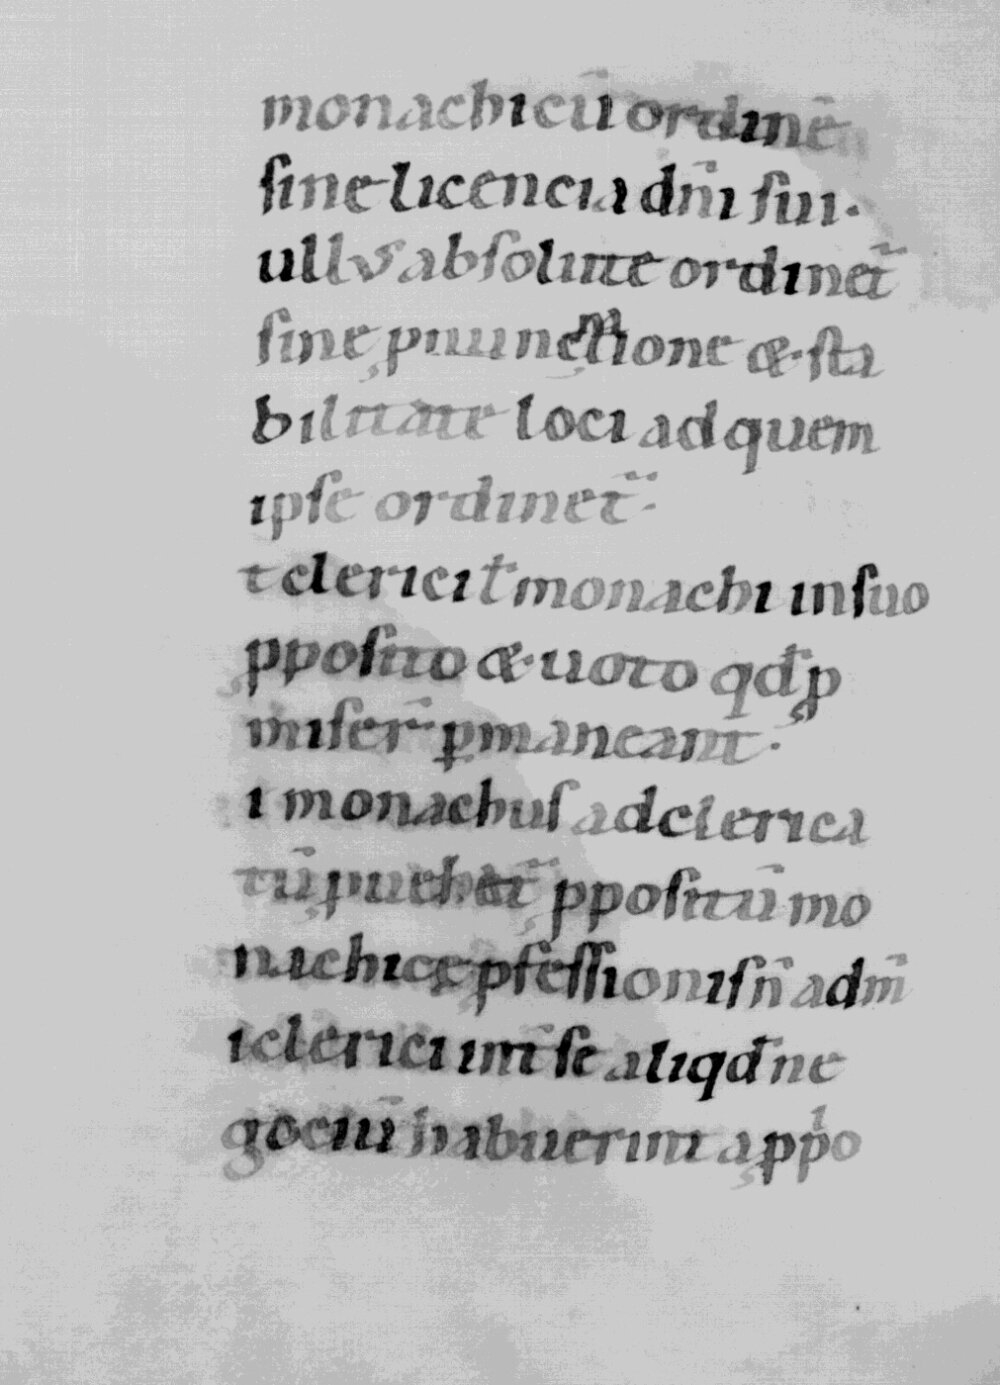 monachicū ordinē
sine licencia dn̄i sui.
ullus absolute ordinet̄
sine pnunctione & sta
bilitate loci ad quem
ipse ordinet̄.
t clerici ł monachi in suo
pposito & uoto qđ p
miser̄ ꝑmaneant.
i monachus ad clerica
tū puehat̄ ppositū mo
nachicę pfessionis n̄ adm̄
i clerici int̄ se aliqđ ne
gociū habuerint a ppo